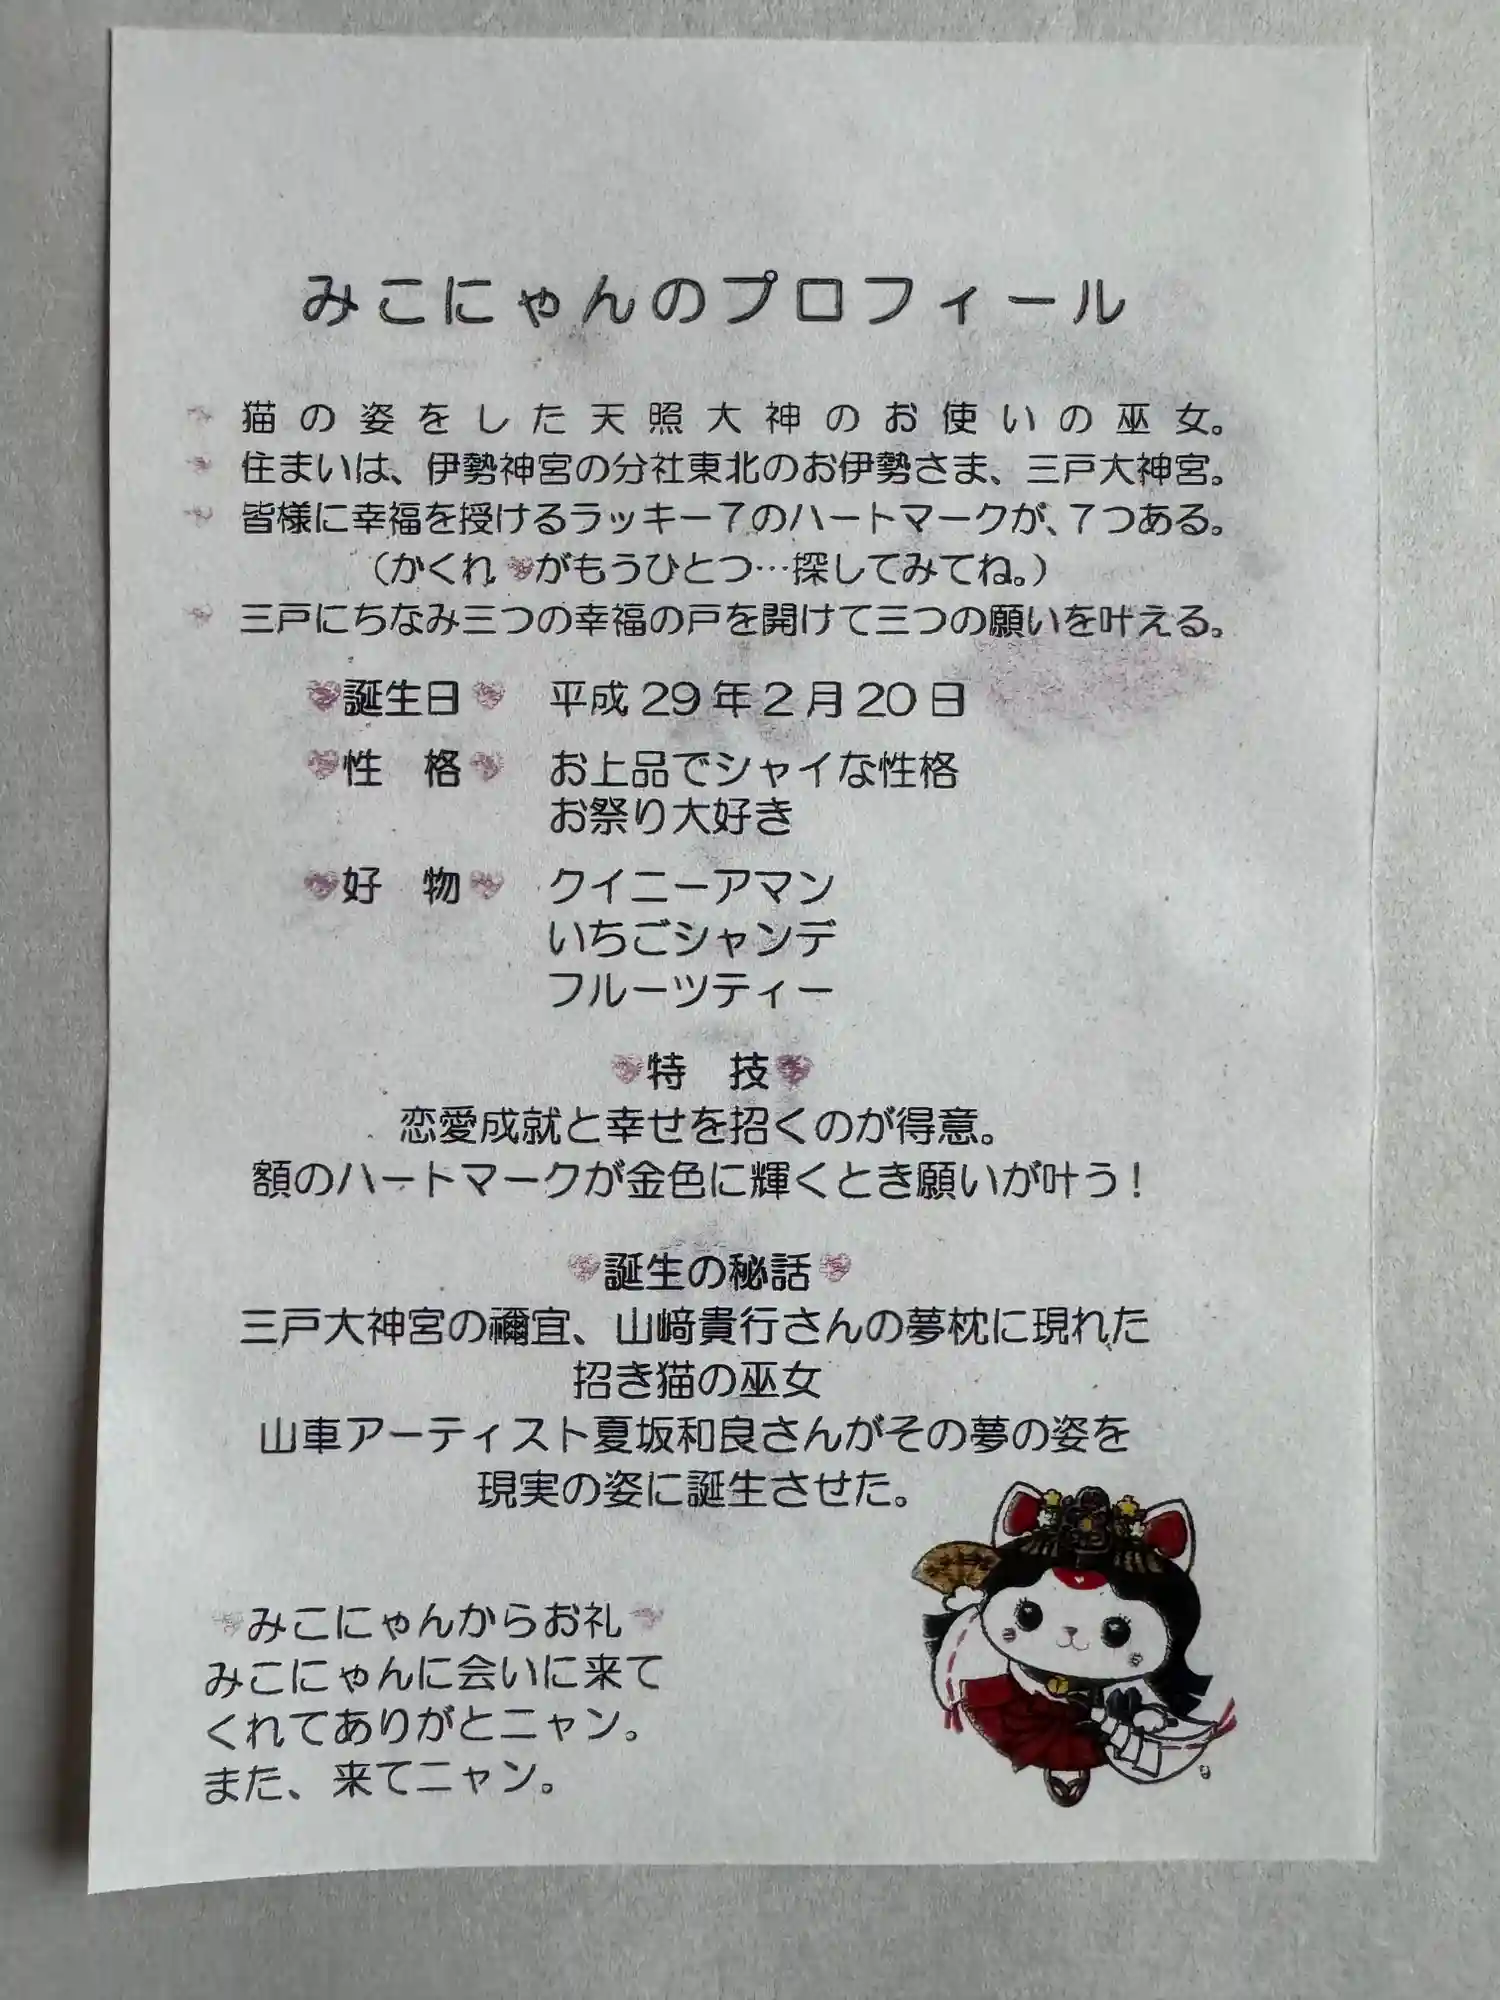 みこにゃんのプロフィール
猫の姿をした天照大神のお使いの巫女。
住まいは、伊勢神宮の分社東北のお伊勢さま、三戸大神宮。
皆様に幸福を授けるラッキー7のハートマークが、7つある。
（かくれ♥がもうひとつ…探してみてね。）
三戸にちなみ三つの幸福の戸を開けて三つの願いを叶える。
♥誕生日♥ 平成29年2月20日
♥性 格♥ お上品でシャイな性格
お祭り大好き
♥好 物♥ クイニーアマン
いちごシャンデ
フルーツティー
♥特 技♥
恋愛成就と幸せを招くのが得意。
額のハートマークが金色に輝くとき願いが叶う！
♥誕生の秘話♥
三戸大神宮の禰宜、山﨑貴行さんの夢枕に現れた
招き猫の巫女
山車アーティスト夏坂和良さんがその夢の姿を
現実の姿に誕生させた。
♥みこにゃんからお礼♥
みこにゃんに会いに来て
くれてありがとニャン。
また、来てニャン。